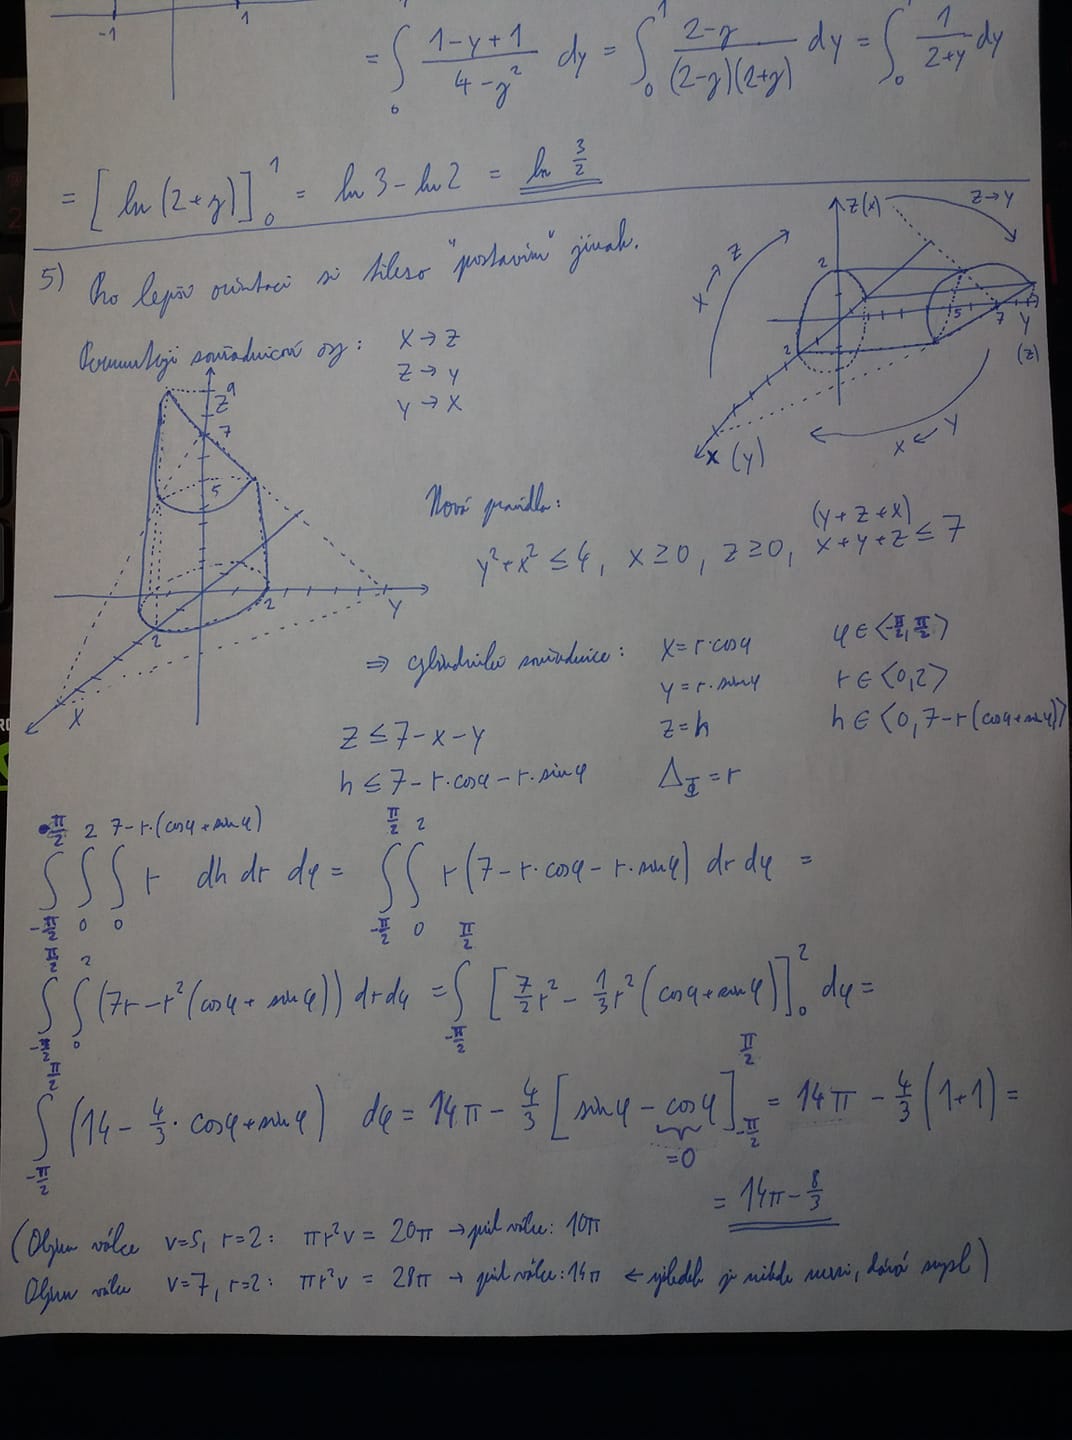 -1 1
= ∫₀¹ (1-y+1)/(4-y²) dy = ∫₀¹ (2-y)/((2-y)(2+y)) dy = ∫₀¹ 1/(2+y) dy
= [ln(2+y)]₀¹ = ln 3 - ln 2 = ln 3/2
5) Pro lepší orientaci si těleso "postavím" jinak.
Permutuji souřadnicové osy: X → Z
Z → Y
Y → X
Z(X) Z→Y
X → Z
2 2 5 7 Y (Z)
X (Y) X ← Y
9 Z 7 5 2 2 Y X
Nová pravidla:
(y+z+x)
y²+x² ≤ 4, x ≥ 0, z ≥ 0, x+y+z ≤ 7
⇒ cylindrické souřadnice: x = r·cosφ φ ∈ <-π/2, π/2>
y = r·sinφ r ∈ <0,2>
z ≤ 7-x-y z = h h ∈ <0, 7-r(cosφ+sinφ)>
h ≤ 7-r·cosφ-r·sinφ Δ_Φ = r
∫_{-π/2}^{π/2} ∫₀² ∫₀^{7-r·(cosφ+sinφ)} r dh dr dφ = ∫_{-π/2}^{π/2} ∫₀² r(7-r·cosφ-r·sinφ) dr dφ =
∫_{-π/2}^{π/2} ∫₀² (7r-r²(cosφ+sinφ)) dr dφ = ∫_{-π/2}^{π/2} [7/2 r² - 1/3 r²(cosφ+sinφ)]₀² dφ =
∫_{-π/2}^{π/2} (14 - 4/3·cosφ+sinφ) dφ = 14π - 4/3 [sinφ - cosφ]_{-π/2}^{π/2} = 14π - 4/3 (1+1) =
=0
= 14π - 8/3
(Objem válce v=5, r=2: πr²v = 20π → půl válce: 10π
Objem válce v=7, r=2: πr²v = 28π → půl válce: 14π ← výsledek je někde mezi, dává smysl)